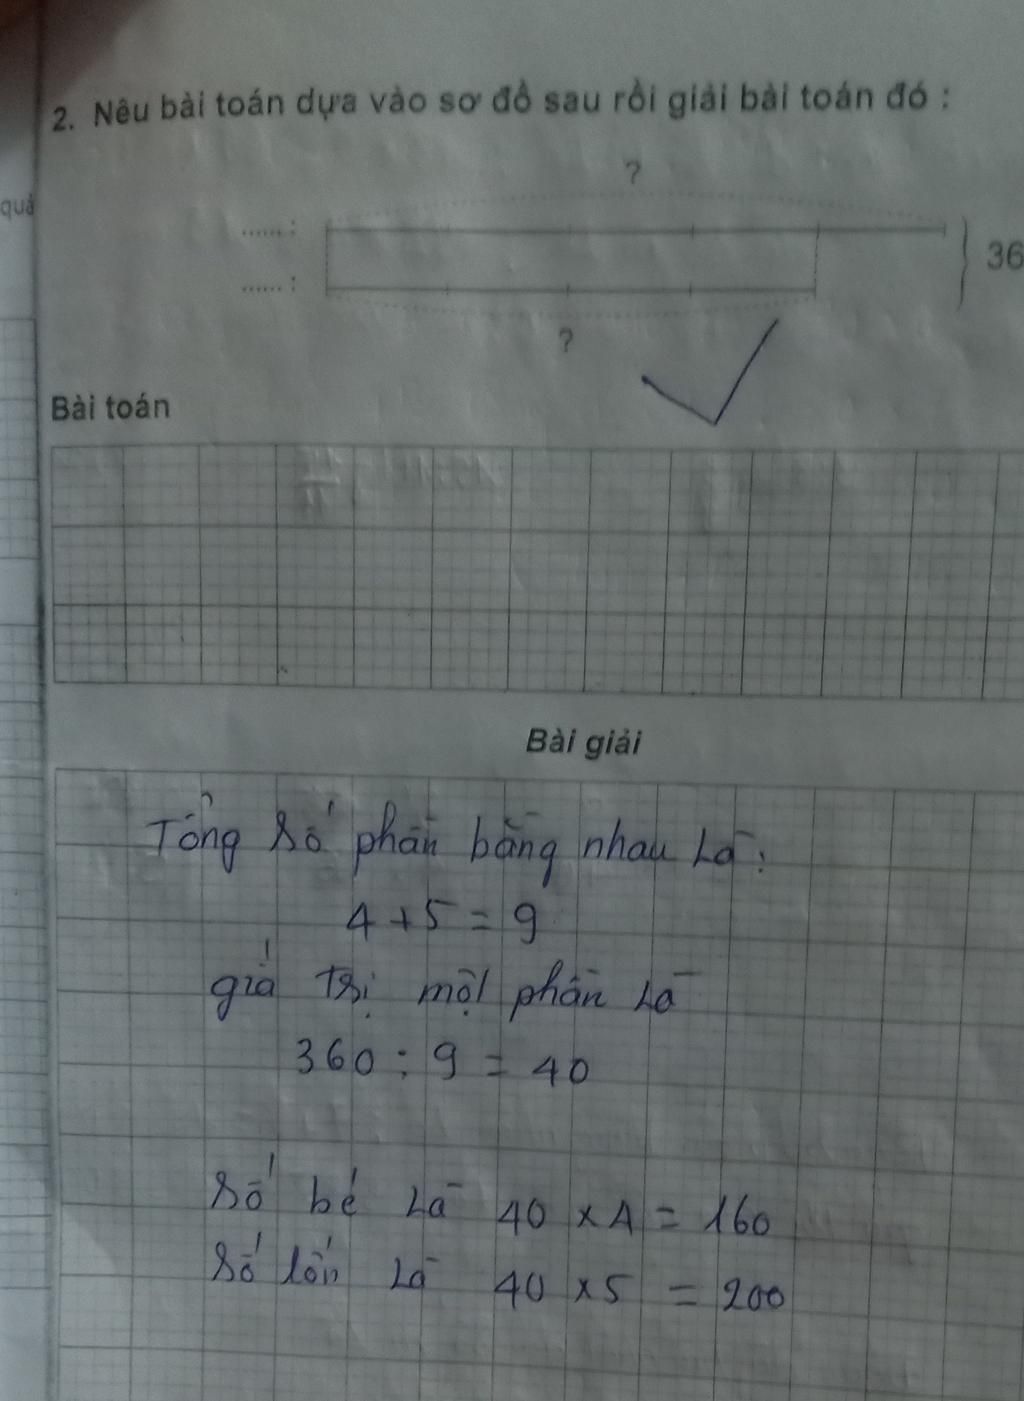 2. Nêu bài toán dựa vào sơ đồ sau rồi giải bài toán đó :
quả
?
...... :
36
...... :
?
Bài toán
Bài giải
Tổng số phần bằng nhau là :
4 + 5 = 9
giá trị một phần là
360 : 9 = 40
số bé là 40 x 4 = 160
số lớn là 40 x 5 = 200